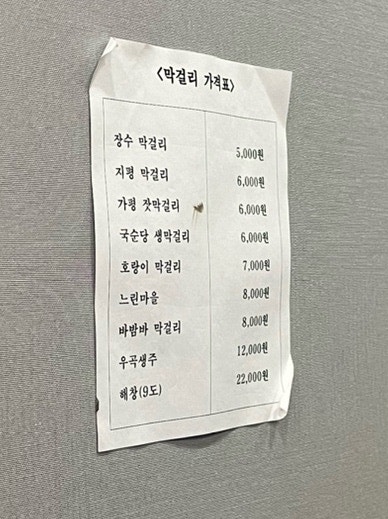 <막걸리 가격표>
장수 막걸리 5,000원
지평 막걸리 6,000원
가평 잣막걸리 6,000원
국순당 생막걸리 6,000원
호랑이 막걸리 7,000원
느린마을 8,000원
바밤바 막걸리 8,000원
우곡생주 12,000원
해창(9도) 22,000원